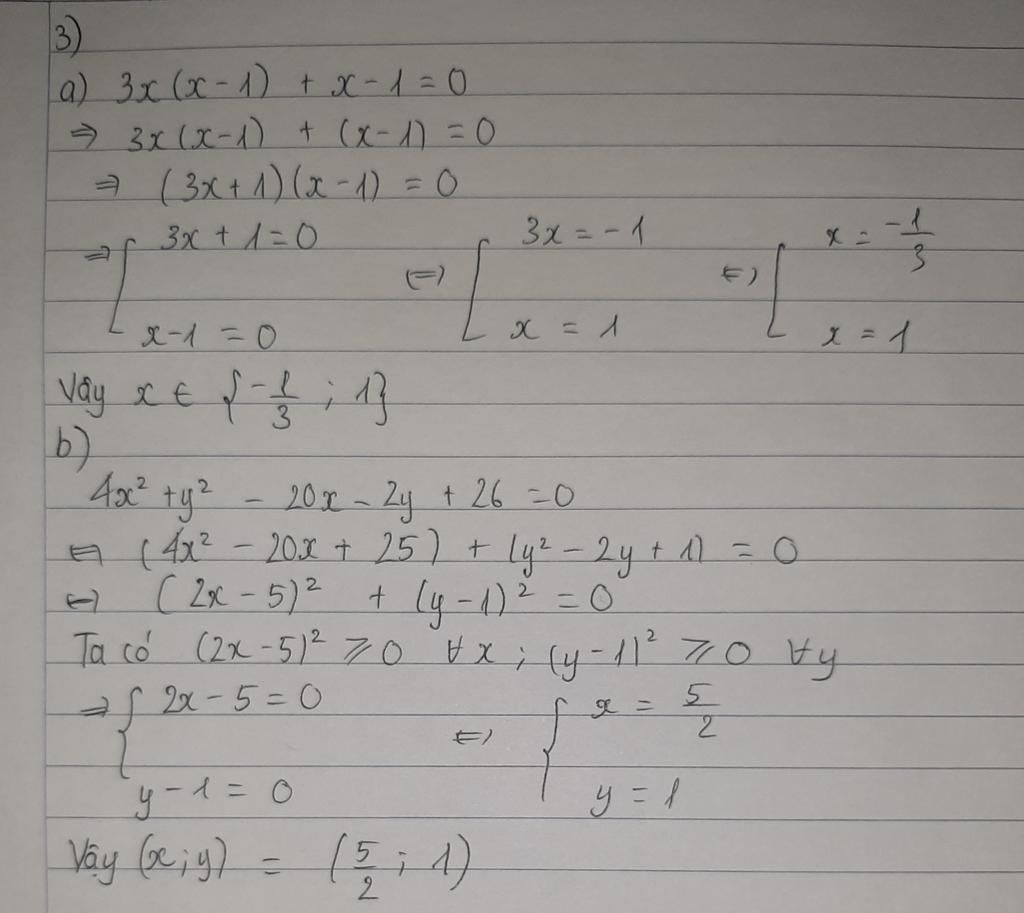 3)
a) 3x(x-1) + x-1 = 0
⇒ 3x(x-1) + (x-1) = 0
⇒ (3x+1)(x-1) = 0
⇒ [ 3x+1=0 ⇔ [ 3x = -1 ⇔ [ x = -1/3
x-1 = 0 x = 1 x = 1
Vậy x ∈ {-1/3 ; 1}
b)
4x² + y² - 20x - 2y + 26 = 0
⇔ (4x² - 20x + 25) + (y² - 2y + 1) = 0
⇔ (2x - 5)² + (y-1)² = 0
Ta có (2x-5)² ⩾ 0 ∀x ; (y-1)² ⩾ 0 ∀y
⇒ { 2x - 5 = 0 ⇔ { x = 5/2
y - 1 = 0 y = 1
Vậy (x;y) = (5/2 ; 1)